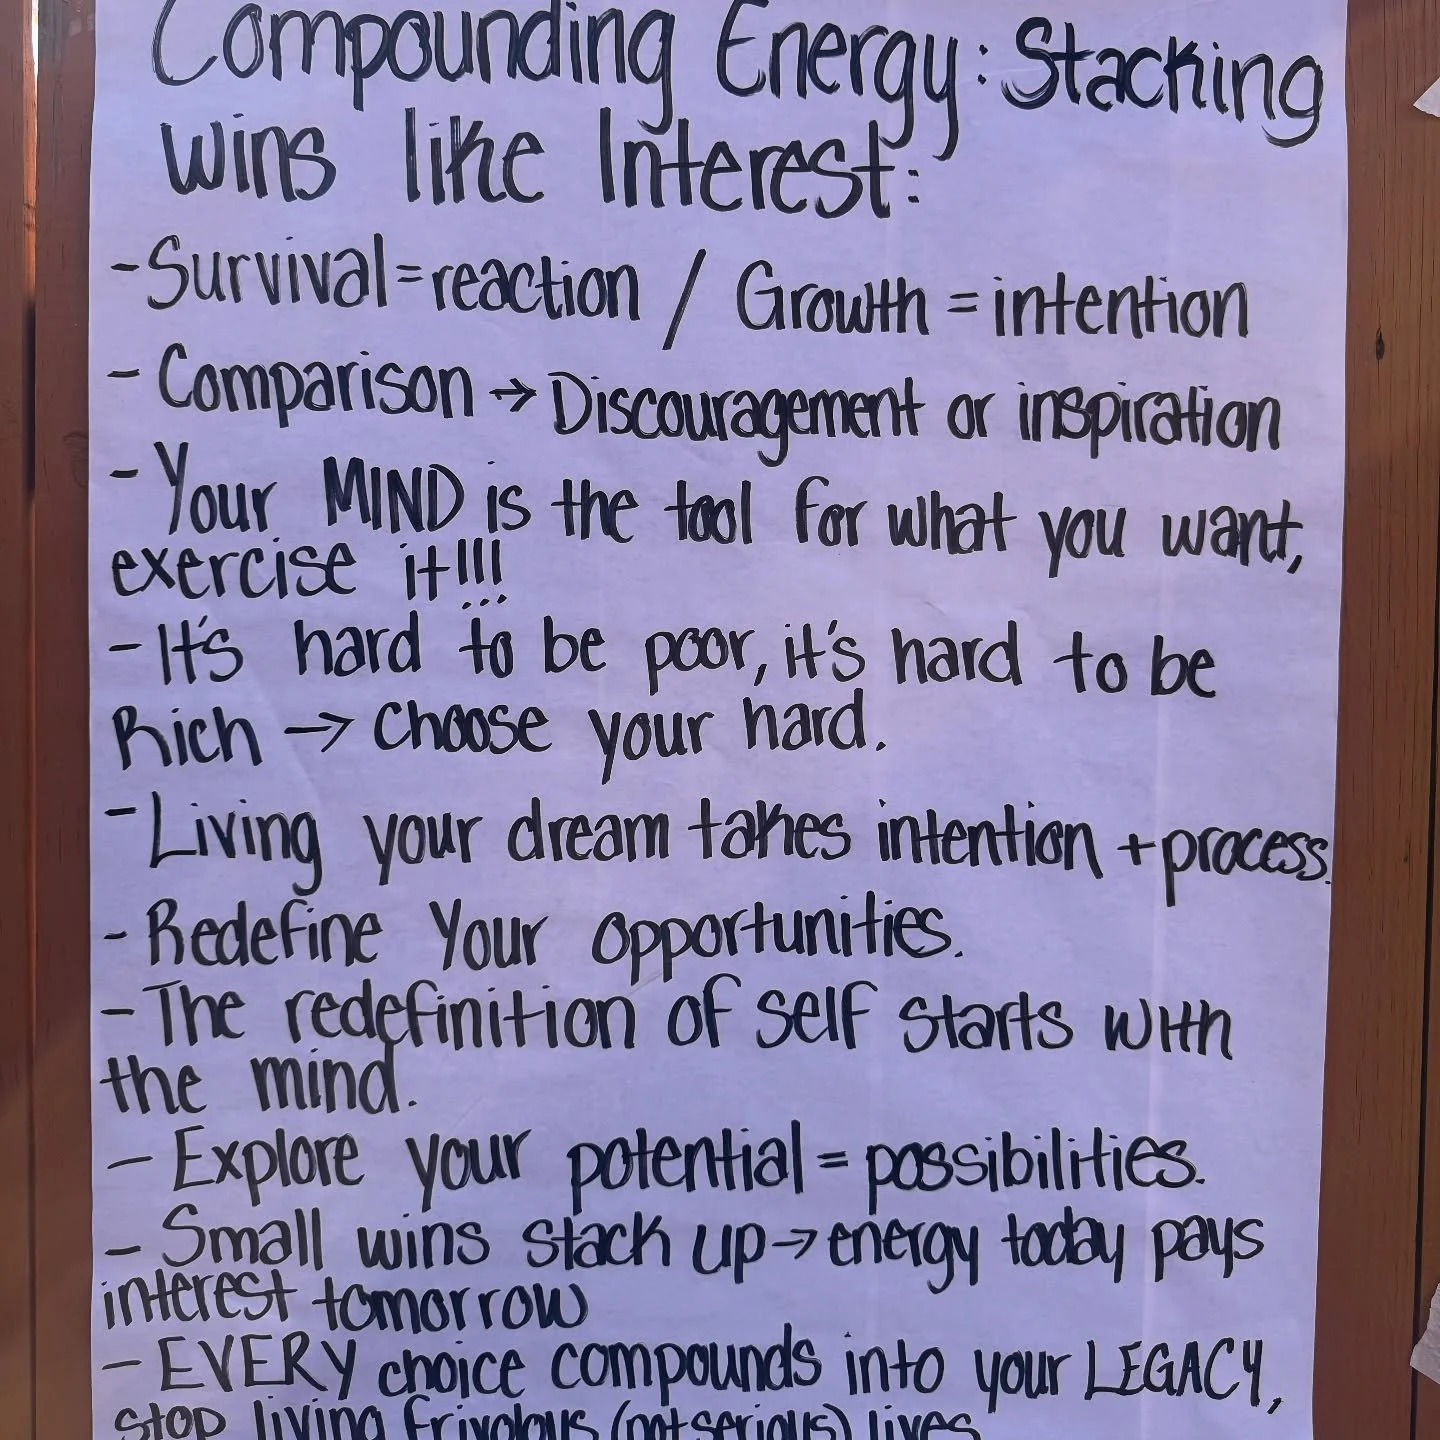 Compounding Energy: Stacking
wins like Interest:
-Survival=reaction / Growth = intention
- Comparison → Discouragement or inspiration
- Your MIND is the tool for what you want,
exercise it!!!
- It's hard to be poor, it's hard to be
Rich → choose your hard.
- Living your dream takes intention + process.
- Redefine Your opportunities.
- The redefinition of self starts with
the mind.
- Explore your potential = possibilities.
- Small wins stack up → energy today pays
interest tomorrow
- EVERY choice compounds into your LEGACY,
stop living frivolous (not serious) lives